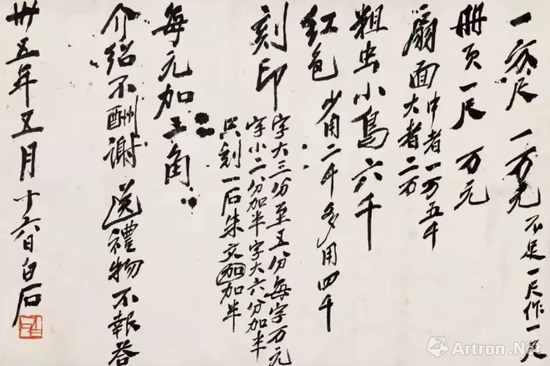 一方尺 一万元 不足一尺作一尺
册页一尺 万元
扇面 中者一万五千
大者二万
粗虫小鸟六千
红色 少用二千 多用四千
刻印 字大三分至五分每字万元
字小二分加半字大六分加半
只刻一石朱文加加半
每元加五角
介绍不酬谢 送禮物不報答
卅五年五月十六日白石
Artron.Net